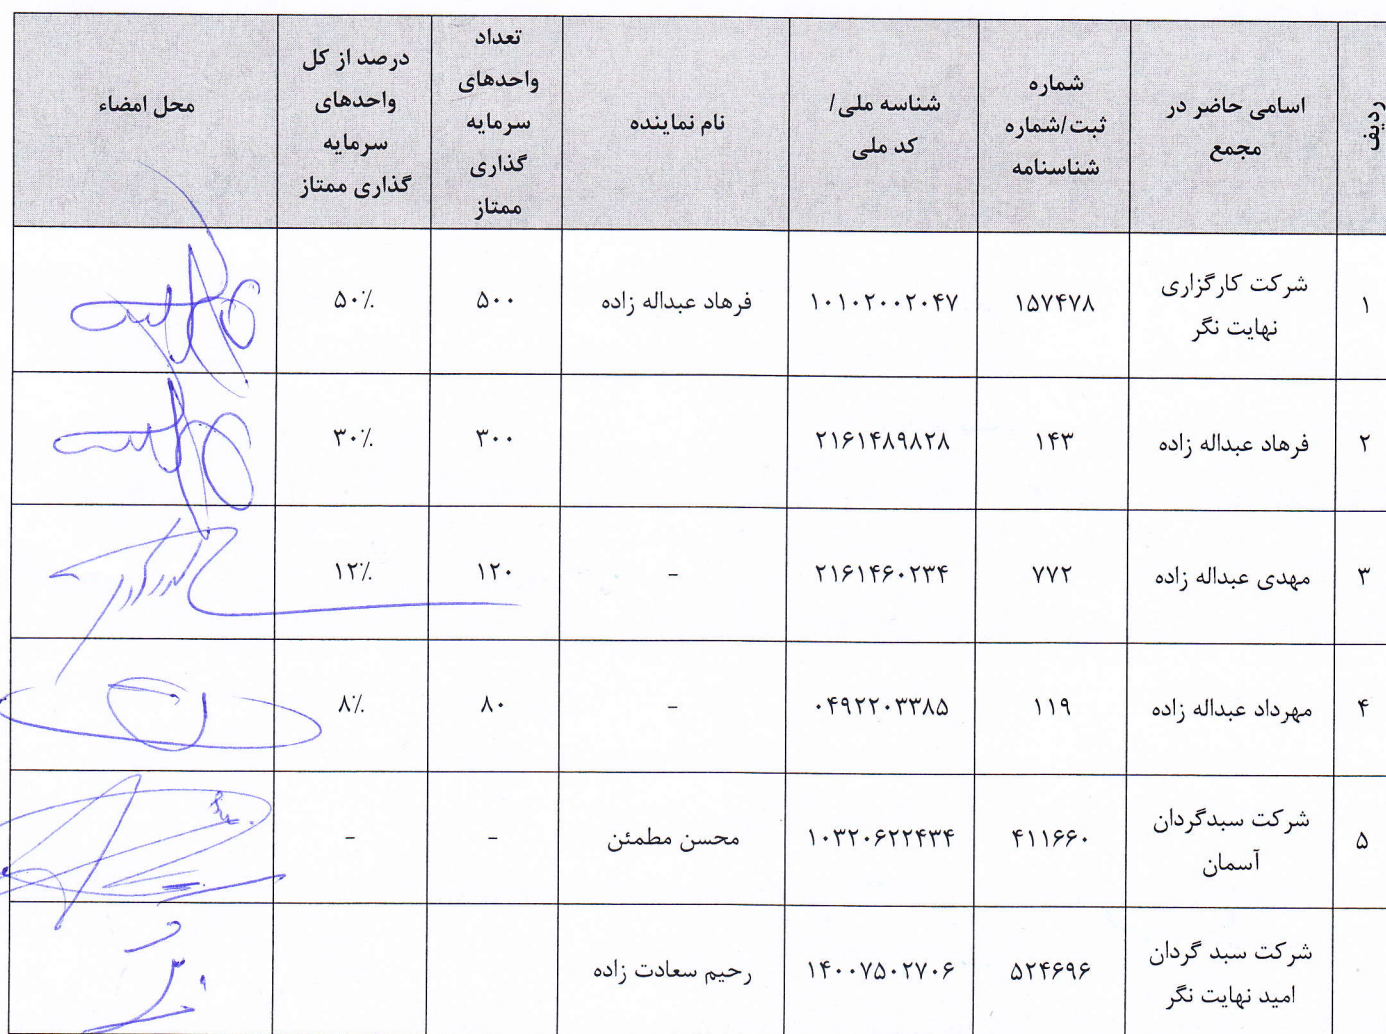 ردیف
اسامی حاضر در
مجمع
شماره
ثبت/شماره
شناسنامه
شناسه ملی/
کد ملی
نام نماینده
تعداد
واحدهای
سرمایه
گذاری
ممتاز
درصد از کل
واحدهای
سرمایه
گذاری ممتاز
محل امضاء
۱
شرکت کارگزاری
نهایت نگر
۱۵۷۴۷۸
۱۰۱۰۲۰۰۲۰۴۷
فرهاد عبداله زاده
۵۰۰
۵۰٪
۲
فرهاد عبداله زاده
۱۴۳
۲۱۶۱۴۸۹۸۲۸
۳۰۰
۳۰٪
۳
مهدی عبداله زاده
۷۷۲
۲۱۶۱۴۶۰۲۳۴
-
۱۲۰
۱۲٪
۴
مهرداد عبداله زاده
۱۱۹
۰۴۹۲۲۰۳۳۸۵
-
۸۰
۸٪
۵
شرکت سبدگردان
آسمان
۴۱۱۶۶۰
۱۰۳۲۰۶۲۲۴۳۴
محسن مطمئن
-
-
شرکت سبد گردان
امید نهایت نگر
۵۲۴۶۹۶
۱۴۰۰۷۵۰۲۷۰۶
رحیم سعادت زاده